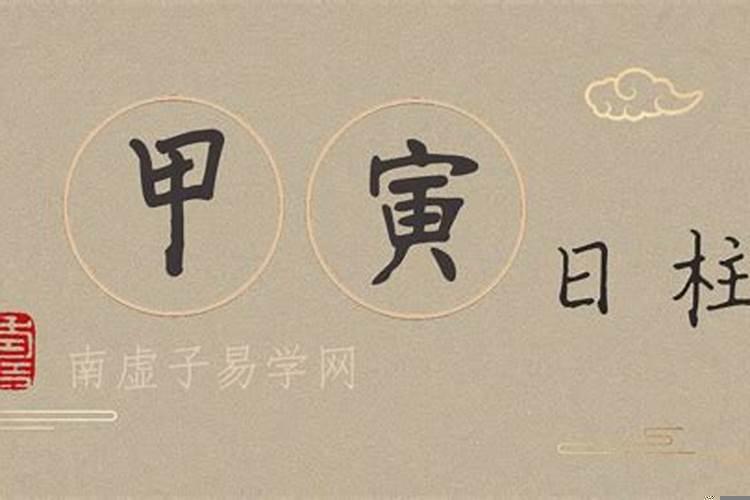 甲寅
日柱
南虚子易学网